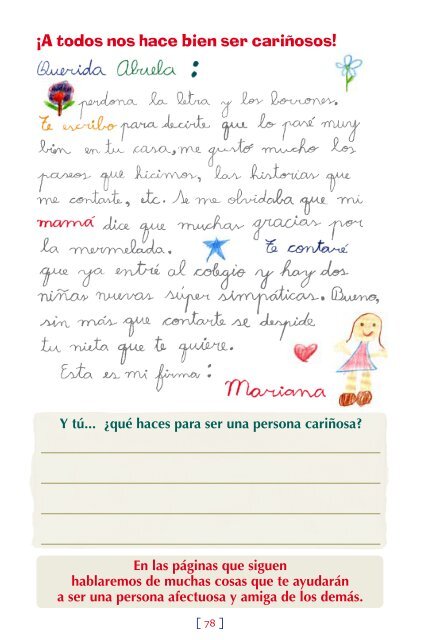 ¡A todos nos hace bien ser cariñosos!
Querida Abuela :
perdona la letra y los borrones.
Te escribo para decirte que lo pasé muy
bien en tu casa, me gustó mucho los
paseos que hicimos, las historias que
me contaste, etc. Se me olvidaba que mi
mamá dice que muchas gracias por
la mermelada. Te contaré
que ya entré al colegio y hay dos
niñas nuevas súper simpáticas. Bueno,
sin más que contarte se despide
tu nieta que te quiere.
Esta es mi firma :
Mariana
Y tú... ¿qué haces para ser una persona cariñosa?
En las páginas que siguen
hablaremos de muchas cosas que te ayudarán
a ser una persona afectuosa y amiga de los demás.
[ 78 ]